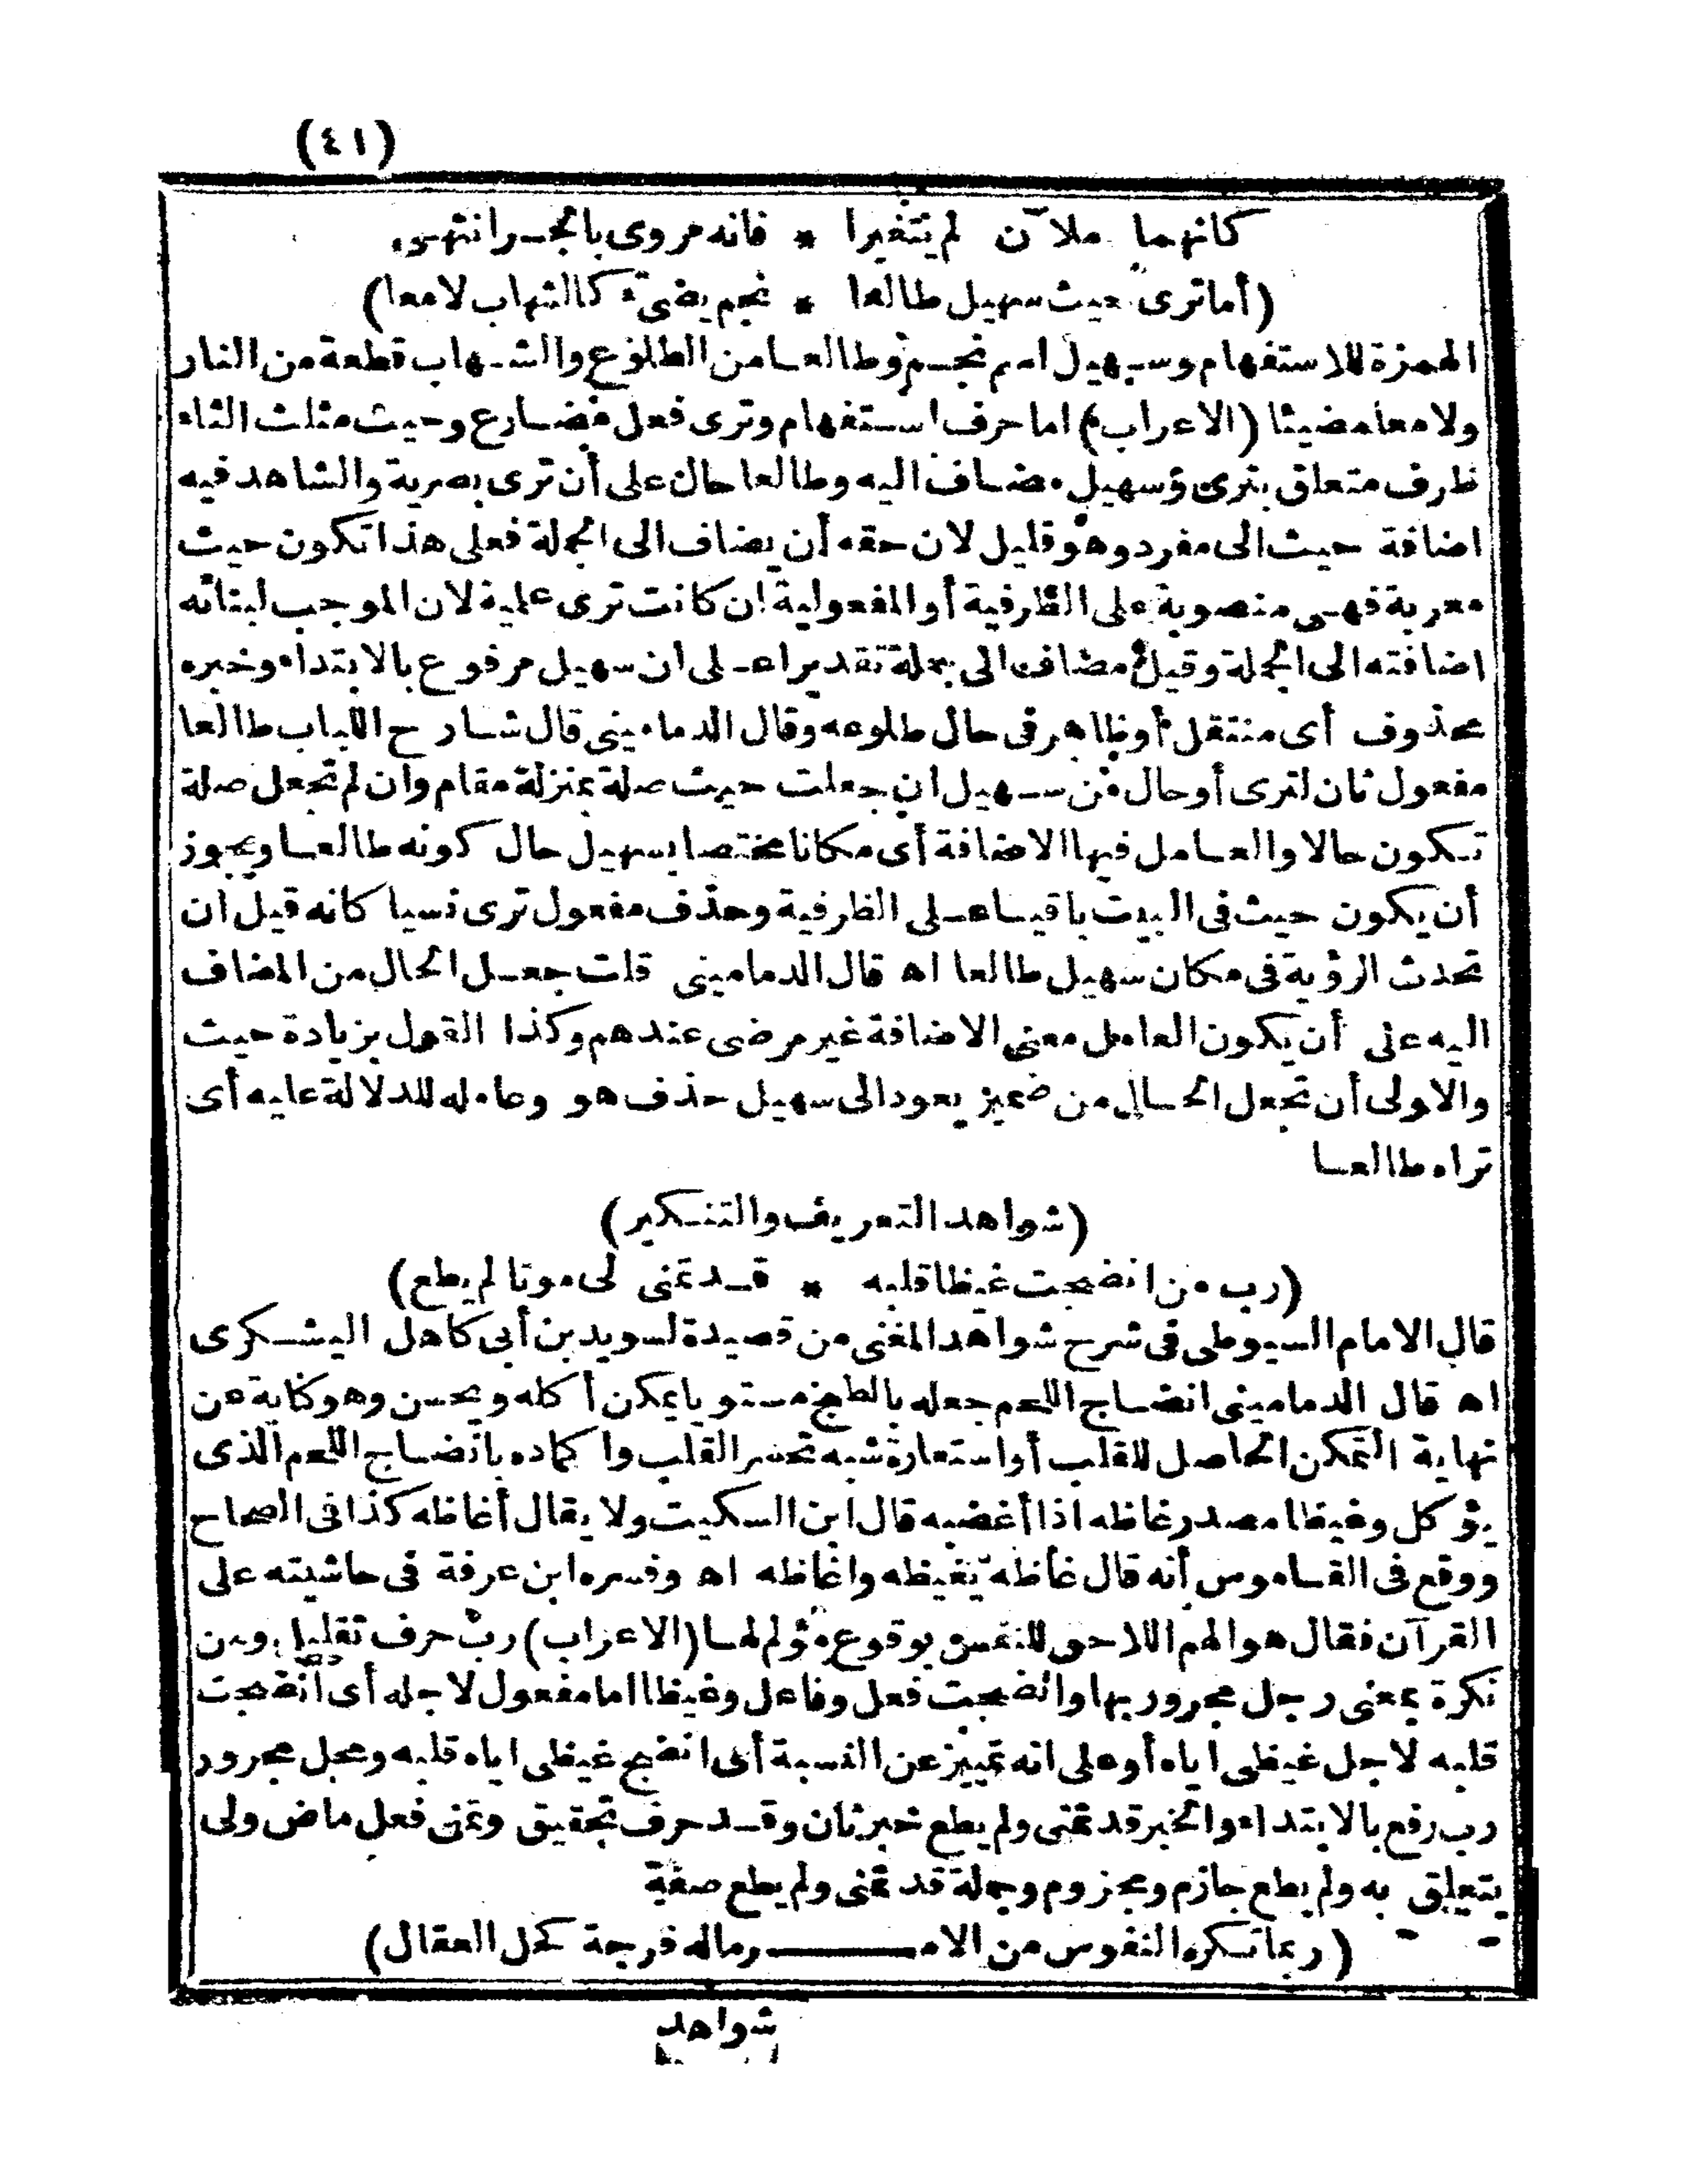 (٤١)
كانهما ملآن لم يتغيرا * فانه مروى بالجـر انتهى
(أما ترى حيث سهيل طالعا * نجم يضىء كالشهاب لامعا)
الهمزة للاستفهام وسهيل اسم نجم وطالعا من الطلوع والشهاب قطعة من النار
ولامعا مضيئا (الاعراب) اما حرف استفهام وترى فعل مضارع وحيث مثلث الثاء
ظرف متعلق بترى وسهيل مضاف اليه وطالعا حال على أن ترى بصرية والشاهد فيه
اضافة حيث الى مفرد وهو قليل لان حقه أن يضاف الى الجملة فعلى هذا تكون حيث
معربة فهى منصوبة على الظرفية أو المفعولية ان كانت ترى علمية لان الموجب لبنائه
اضافته الى الجملة وقيل مضاف الى جملة تقديرا على ان سهيل مرفوع بالابتداء وخبره
محذوف أى منتقل أو ظاهر فى حال طلوعه وقال الدمامينى قال شارح اللباب طالعا
مفعول ثان لترى أو حال من سهيل ان جعلت حيث صلة بمنزلة مقام وان لم تجعل صلة
تكون حالا والعامل فيها الاضافة أى مكانا مختصا بسهيل حال كونه طالعا ويجوز
أن يكون حيث فى البيت باقيا على الظرفية وحذف مفعول ترى نسيا كانه قيل ان
تحدث الرؤية فى مكان سهيل طالعا اه قال الدمامينى قلت جعل الحال من المضاف
اليه على أن يكون العامل معنى الاضافة غير مرضى عندهم وكذا القول بزيادة حيث
والاولى أن تجعل الحال من ضمير يعود الى سهيل حذف هو وعامله للدلالة عليه أى
تراه طالعا
(شواهد التعريف والتنكير)
(رب من انضجت غيظا قلبه * قد تمنى لى موتا لم يطع)
قال الامام السيوطى فى شرح شواهد المغنى من قصيدة لسويد بن أبى كاهل اليشكرى
اه قال الدمامينى انضاج اللحم جعله بالطبخ مستويا يمكن أكله ويحسن وهو كناية عن
نهاية التمكن الحاصل للقلب أو استعارة شبه تحسر القلب واكماده بانضاج اللحم الذى
يؤكل وغيظا مصدر غاظه اذا أغضبه قال ابن السكيت ولا يقال أغاظه كذا فى الصحاح
ووقع فى القاموس أنه قال غاظه يغيظه واغاظه اه وفسره ابن عرفة فى حاشيته على
القرآن فقال هو الهم اللاحق للنفس بوقوع مؤلم لها (الاعراب) رب حرف تقليل ومن
نكرة بمعنى رجل مجرور بها وانضجت فعل وفاعل وغيظا اما مفعول لاجله أى انضجت
قلبه لاجل غيظى اياه أو على انه تمييز عن النسبة أى انضج غيظى اياه قلبه ومحل مجرور
رب رفع بالابتداء والخبر قد تمنى ولم يطع خبر ثان وقد حرف تحقيق وتمنى فعل ماض ولى
يتعلق به ولم يطع جازم ومجزوم وجملة قد تمنى ولم يطع صفة
(ربما تكره النفوس من الامـــــر ماله فرجة كحل العقال)
شواهد